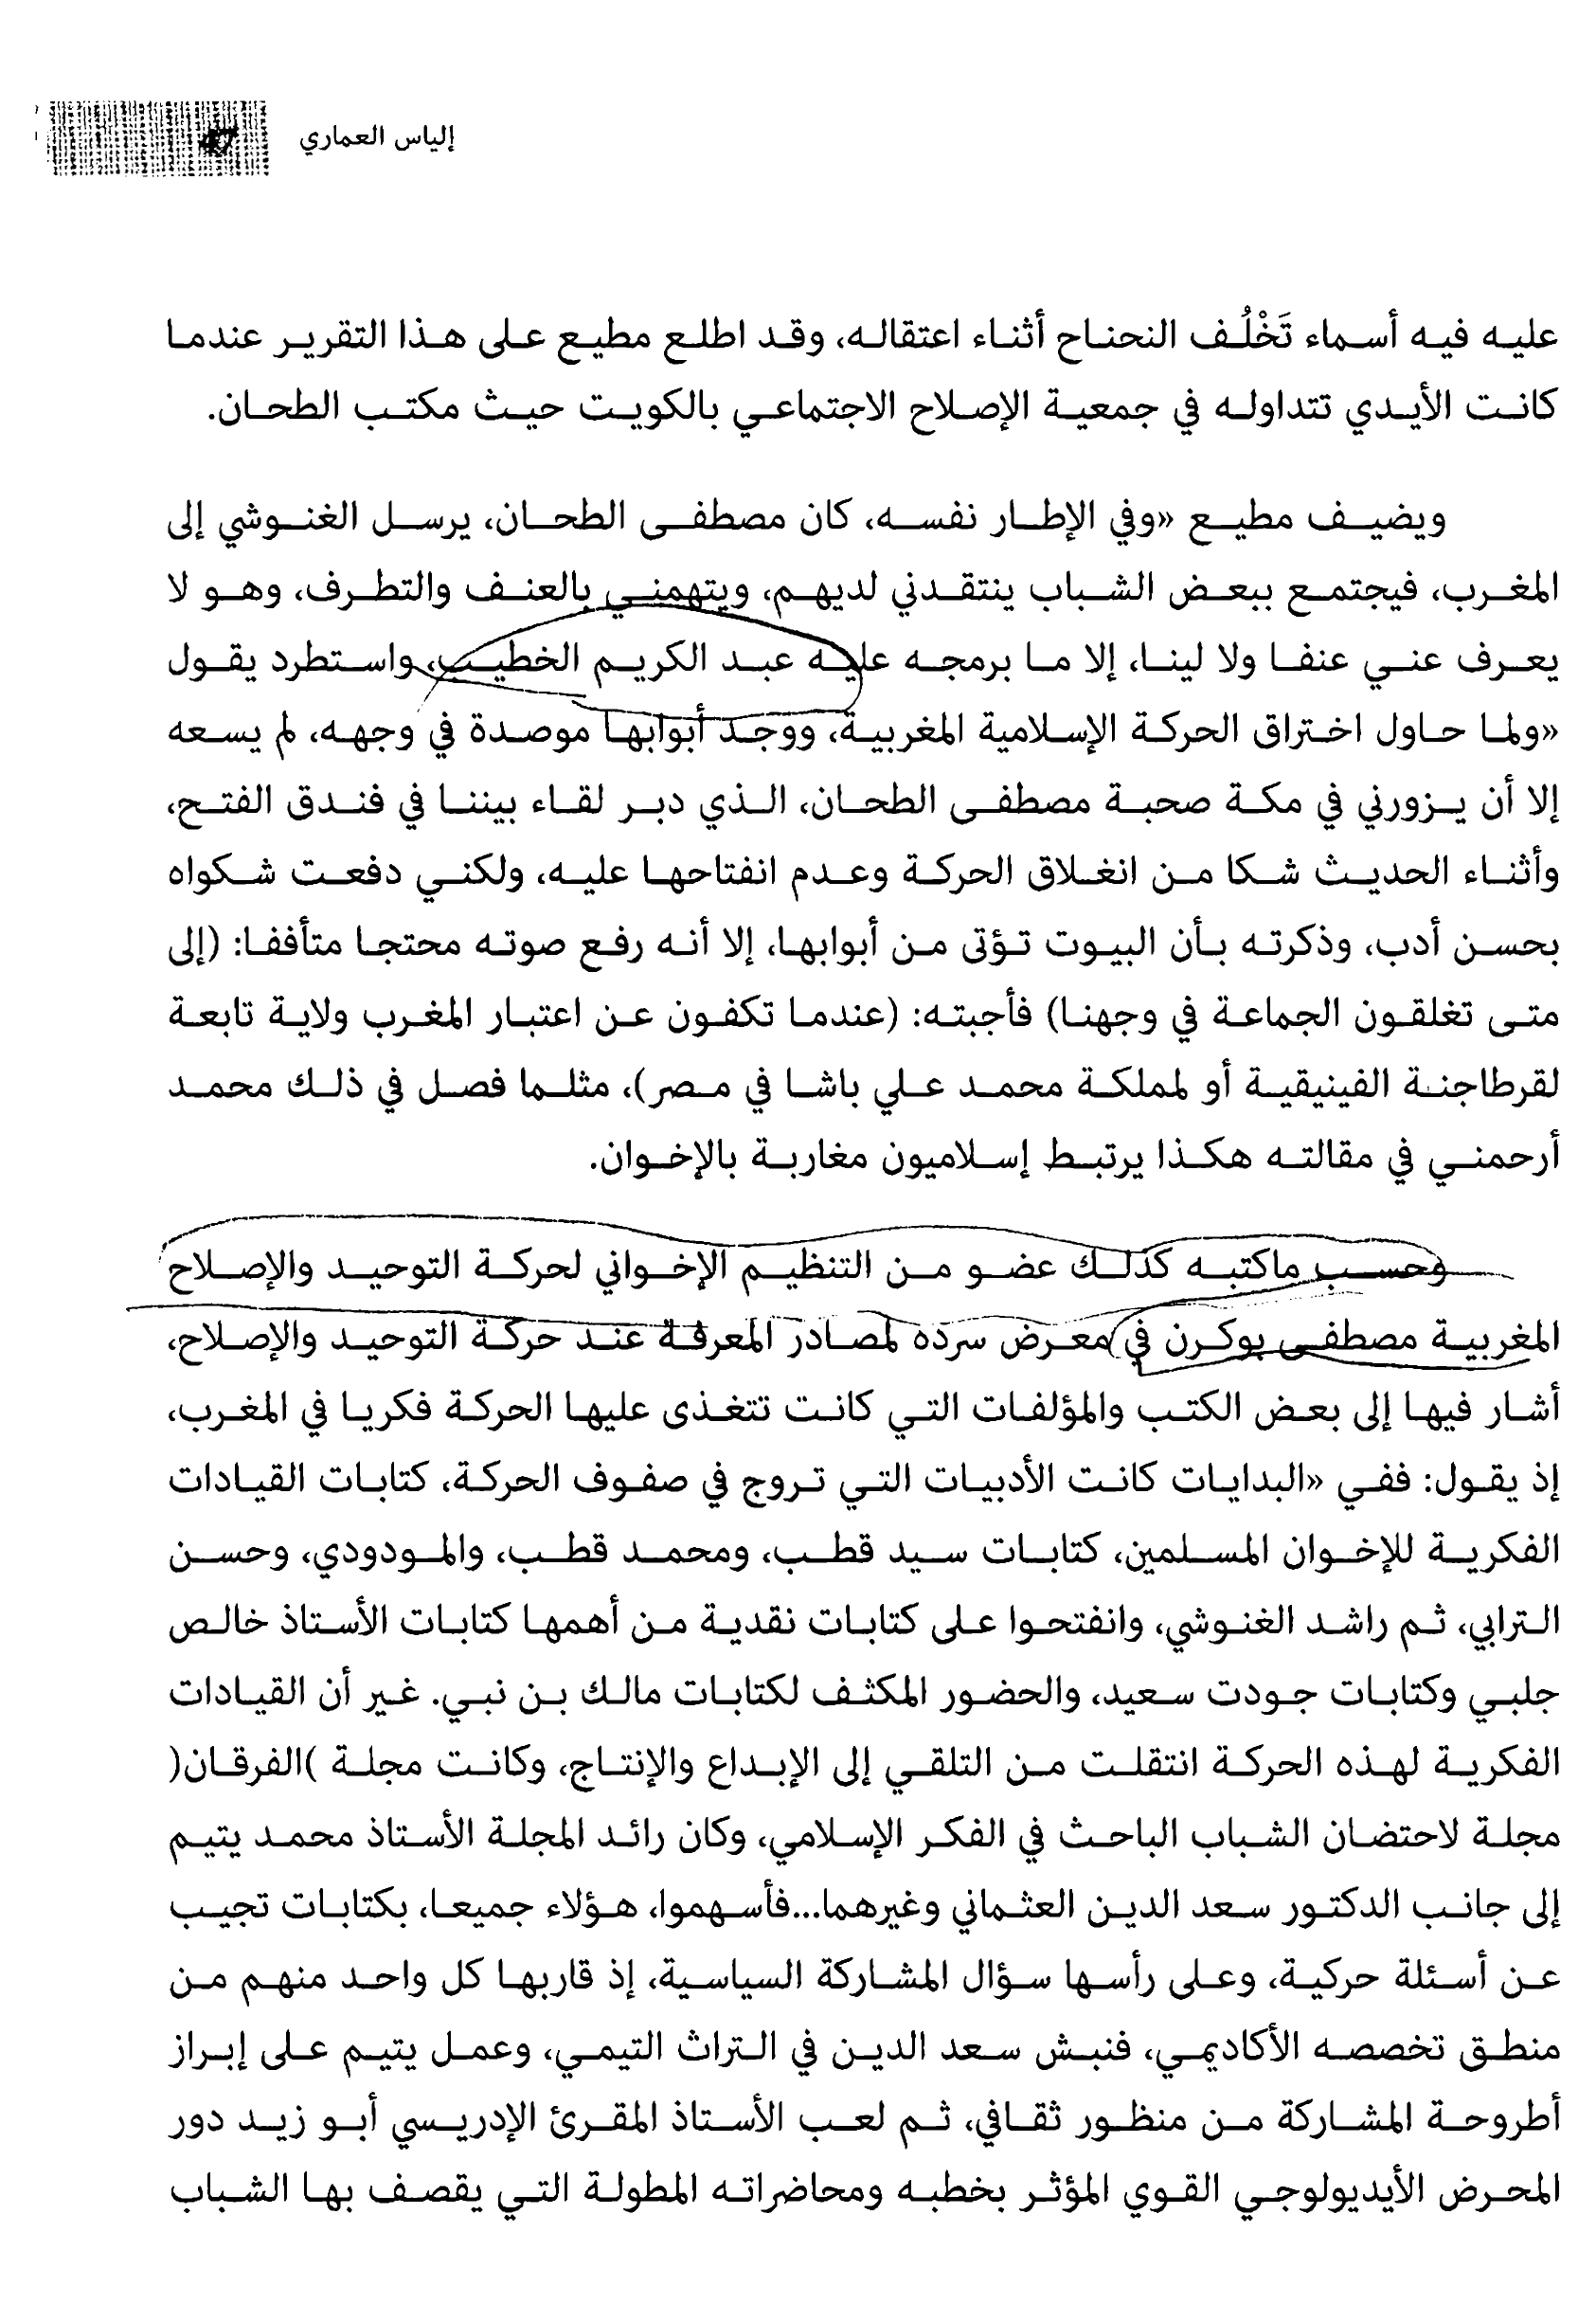 إلياس العماري 47
عليه فيه أسماء تَخْلُف النحناح أثناء اعتقاله، وقد اطلع مطيع على هذا التقرير عندما
كانت الأيدي تتداوله في جمعية الإصلاح الاجتماعي بالكويت حيث مكتب الطحان.
ويضيف مطيع «وفي الإطار نفسه، كان مصطفى الطحان، يرسل الغنوشي إلى
المغرب، فيجتمع ببعض الشباب ينتقدني لديهم، ويتهمني بالعنف والتطرف، وهو لا
يعرف عني عنفا ولا لينا، إلا ما برمجه عليه عبد الكريم الخطيب، واستطرد يقول
«ولما حاول اختراق الحركة الإسلامية المغربية، ووجد أبوابها موصدة في وجهه، لم يسعه
إلا أن يزورني في مكة صحبة مصطفى الطحان، الذي دبر لقاء بيننا في فندق الفتح،
وأثناء الحديث شكا من انغلاق الحركة وعدم انفتاحها عليه، ولكني دفعت شكواه
بحسن أدب، وذكرته بأن البيوت تؤتى من أبوابها، إلا أنه رفع صوته محتجا متأففا: (إلى
متى تغلقون الجماعة في وجهنا) فأجبته: (عندما تكفون عن اعتبار المغرب ولاية تابعة
لقرطاجنة الفينيقية أو لمملكة محمد علي باشا في مصر)، مثلما فصل في ذلك محمد
أرحمني في مقالته هكذا يرتبط إسلاميون مغاربة بالإخوان.
وحسب ماكتبه كذلك عضو من التنظيم الإخواني لحركة التوحيد والإصلاح
المغربية مصطفى بوكرن في معرض سرده لمصادر المعرفة عند حركة التوحيد والإصلاح،
أشار فيها إلى بعض الكتب والمؤلفات التي كانت تتغذى عليها الحركة فكريا في المغرب،
إذ يقول: ففي «البدايات كانت الأدبيات التي تروج في صفوف الحركة، كتابات القيادات
الفكرية للإخوان المسلمين، كتابات سيد قطب، ومحمد قطب، والمودودي، وحسن
الترابي، ثم راشد الغنوشي، وانفتحوا على كتابات نقدية من أهمها كتابات الأستاذ خالص
جلبي وكتابات جودت سعيد، والحضور المكثف لكتابات مالك بن نبي. غير أن القيادات
الفكرية لهذه الحركة انتقلت من التلقي إلى الإبداع والإنتاج، وكانت مجلة )الفرقان(
مجلة لاحتضان الشباب الباحث في الفكر الإسلامي، وكان رائد المجلة الأستاذ محمد يتيم
إلى جانب الدكتور سعد الدين العثماني وغيرهما...فأسهموا، هؤلاء جميعا، بكتابات تجيب
عن أسئلة حركية، وعلى رأسها سؤال المشاركة السياسية، إذ قاربها كل واحد منهم من
منطق تخصصه الأكاديمي، فنبش سعد الدين في التراث التيمي، وعمل يتيم على إبراز
أطروحة المشاركة من منظور ثقافي، ثم لعب الأستاذ المقرئ الإدريسي أبو زيد دور
المحرض الأيديولوجي القوي المؤثر بخطبه ومحاضراته المطولة التي يقصف بها الشباب